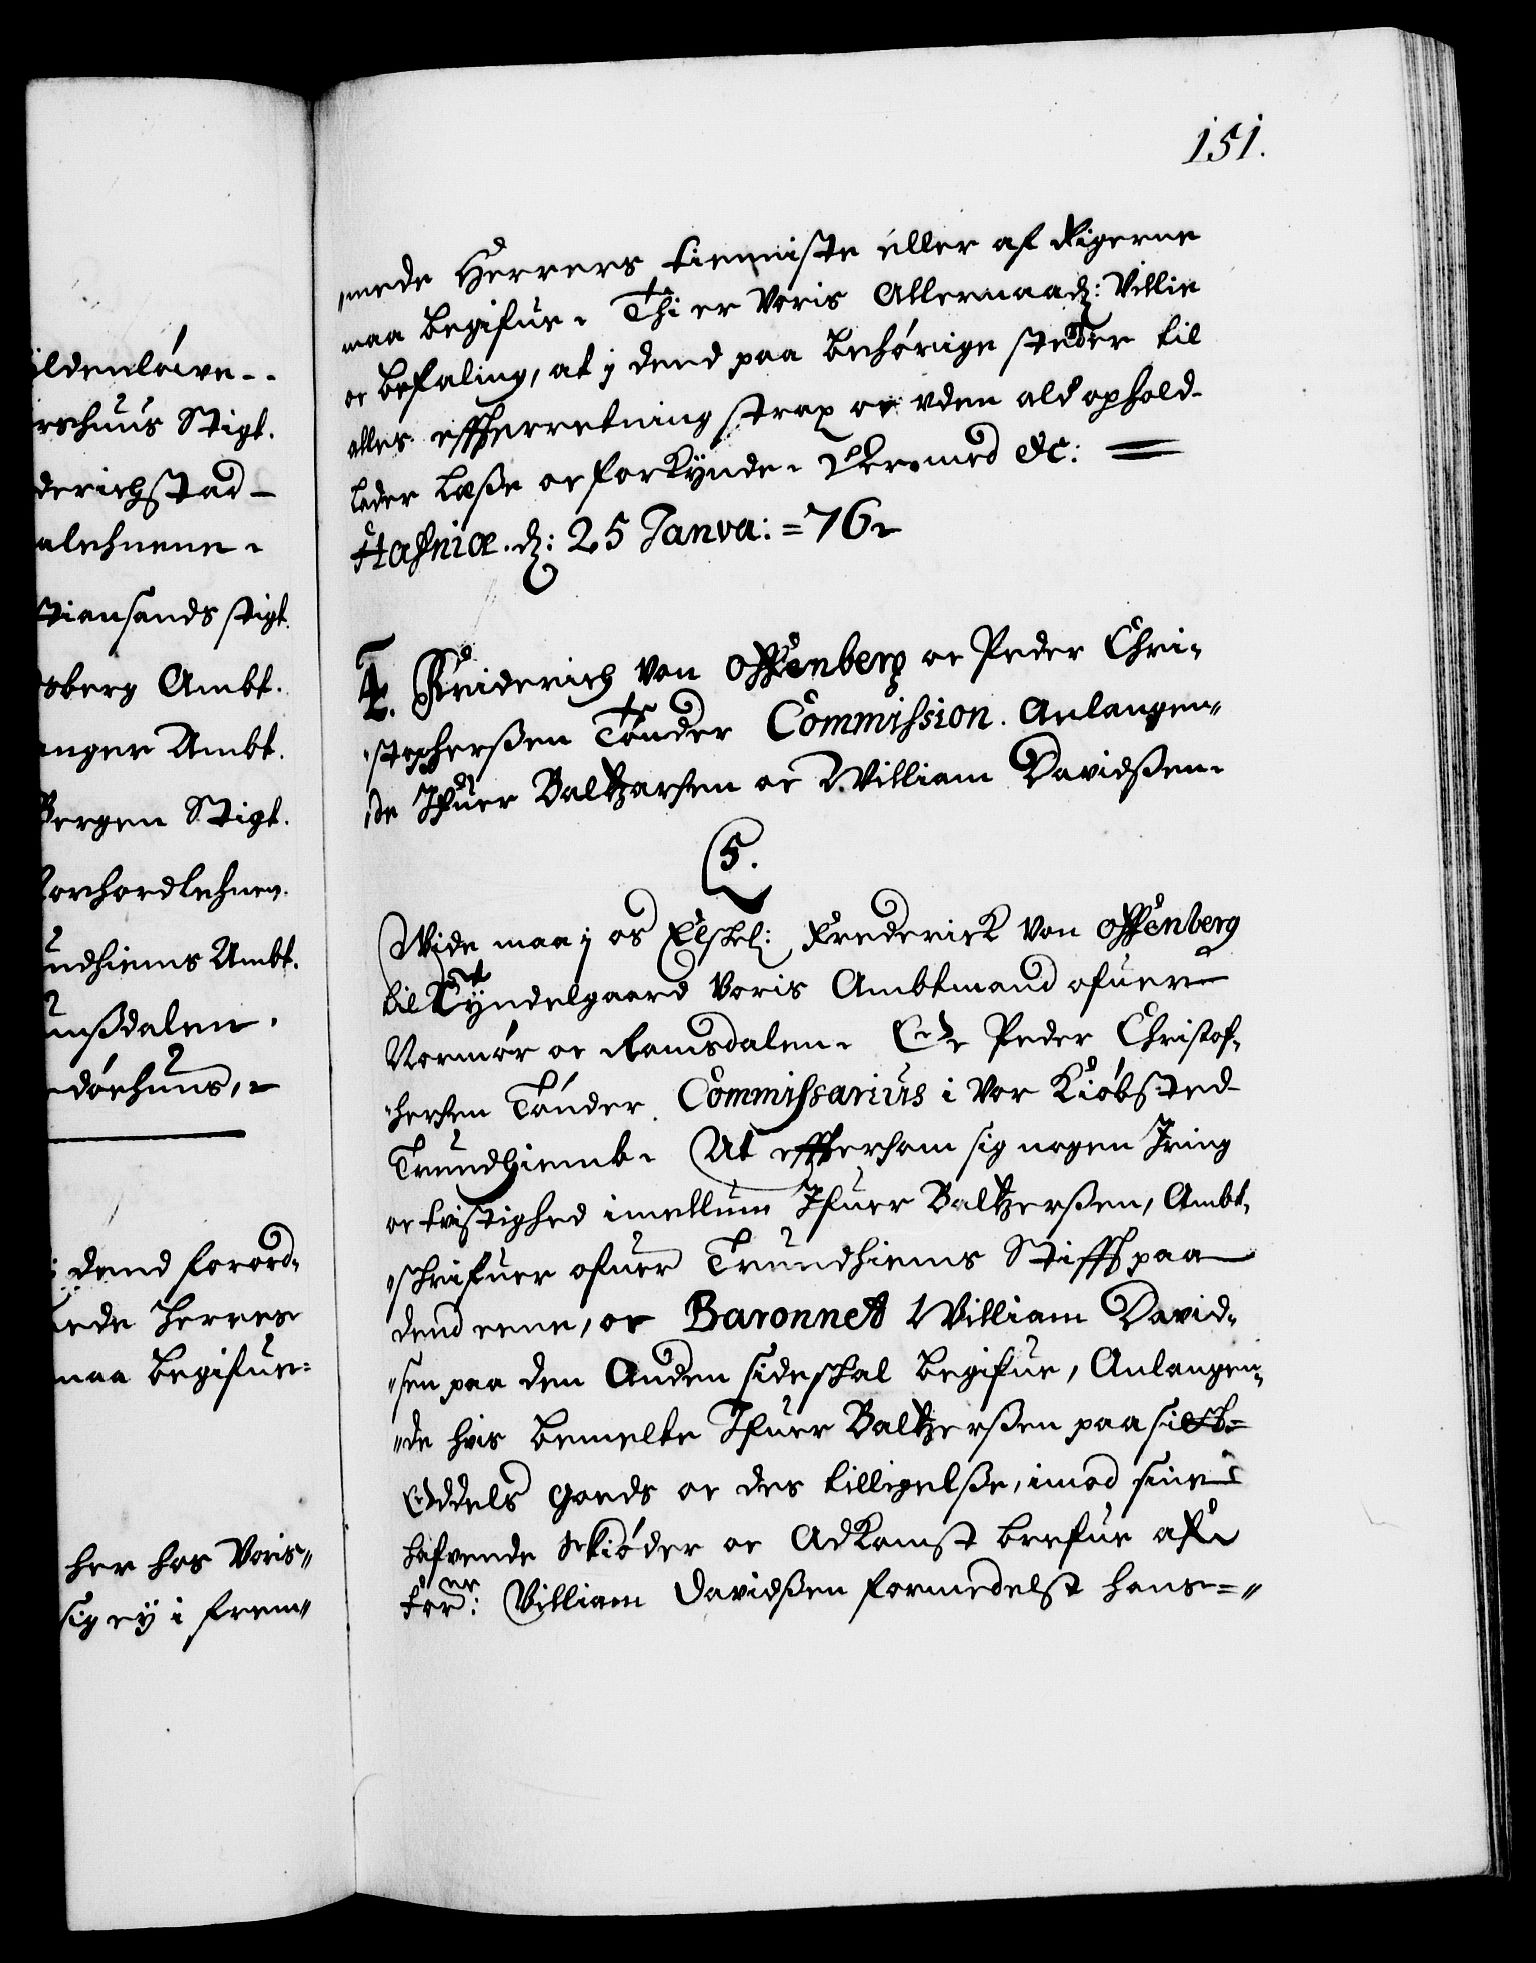 ildenlöwe - .
rshuus Stigt.
derichstad -
alehnene.
tiansands stigt.
sberg Ambt.
anger Ambt.
Bergen Stigt.
Norhordlehnen.
undhiems Ambt.
umßdalen.
dörhuus,
i dend forord„
ede herres
maa begifue=
her hos Voris„
sig ey i frem„
151.
„mede Herrers tienniste eller af Rigerne
maa begifue. Thi er Voris Allernaad: Villie
oc befaling, at j dend paa behörige steder til
alles effterretning strax oc uden ald ophold
lader læße oc forkynde. Dermed &c: =
Hafniæ. d: 25 Janva: = 76
4. Friderich von Offenberg oc Peder Chri„
„stopherßen Tönder Commission. Anlangen„
„de Ifuer Baltzarsen oc William Davidßen.
5.
Wide maa j os Elskel: Frederick von Offenberg
til Tyndelgaard Voris Ambtmand ofuer
Normör oc Ramsdalen. Oc Peder Christof„
„hersen Tönder Commissarius i Vor Kiöbsted
Trundhiemb. At effterssom sig nogen Irring
oc tvistighed imellum Ifuer Baltzerßen, Ambt„
„schrifuer ofuer Trundhiems Stifft paa
dend eene, oc Baronnet William David„
„sen paa den Anden side skal begifue, Anlangen„
„de hvis bemelte Ifuer Baltzerßen paa sit
Oddels Goeds oc des tilligelße, imod sine
hafvende Skiöder oc Adkomst brefue af
for: William Davidßen formedelst hans=„